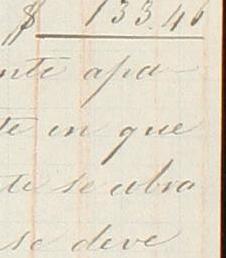 $ 133.46
nte apa
te en que
te se abra
se deve